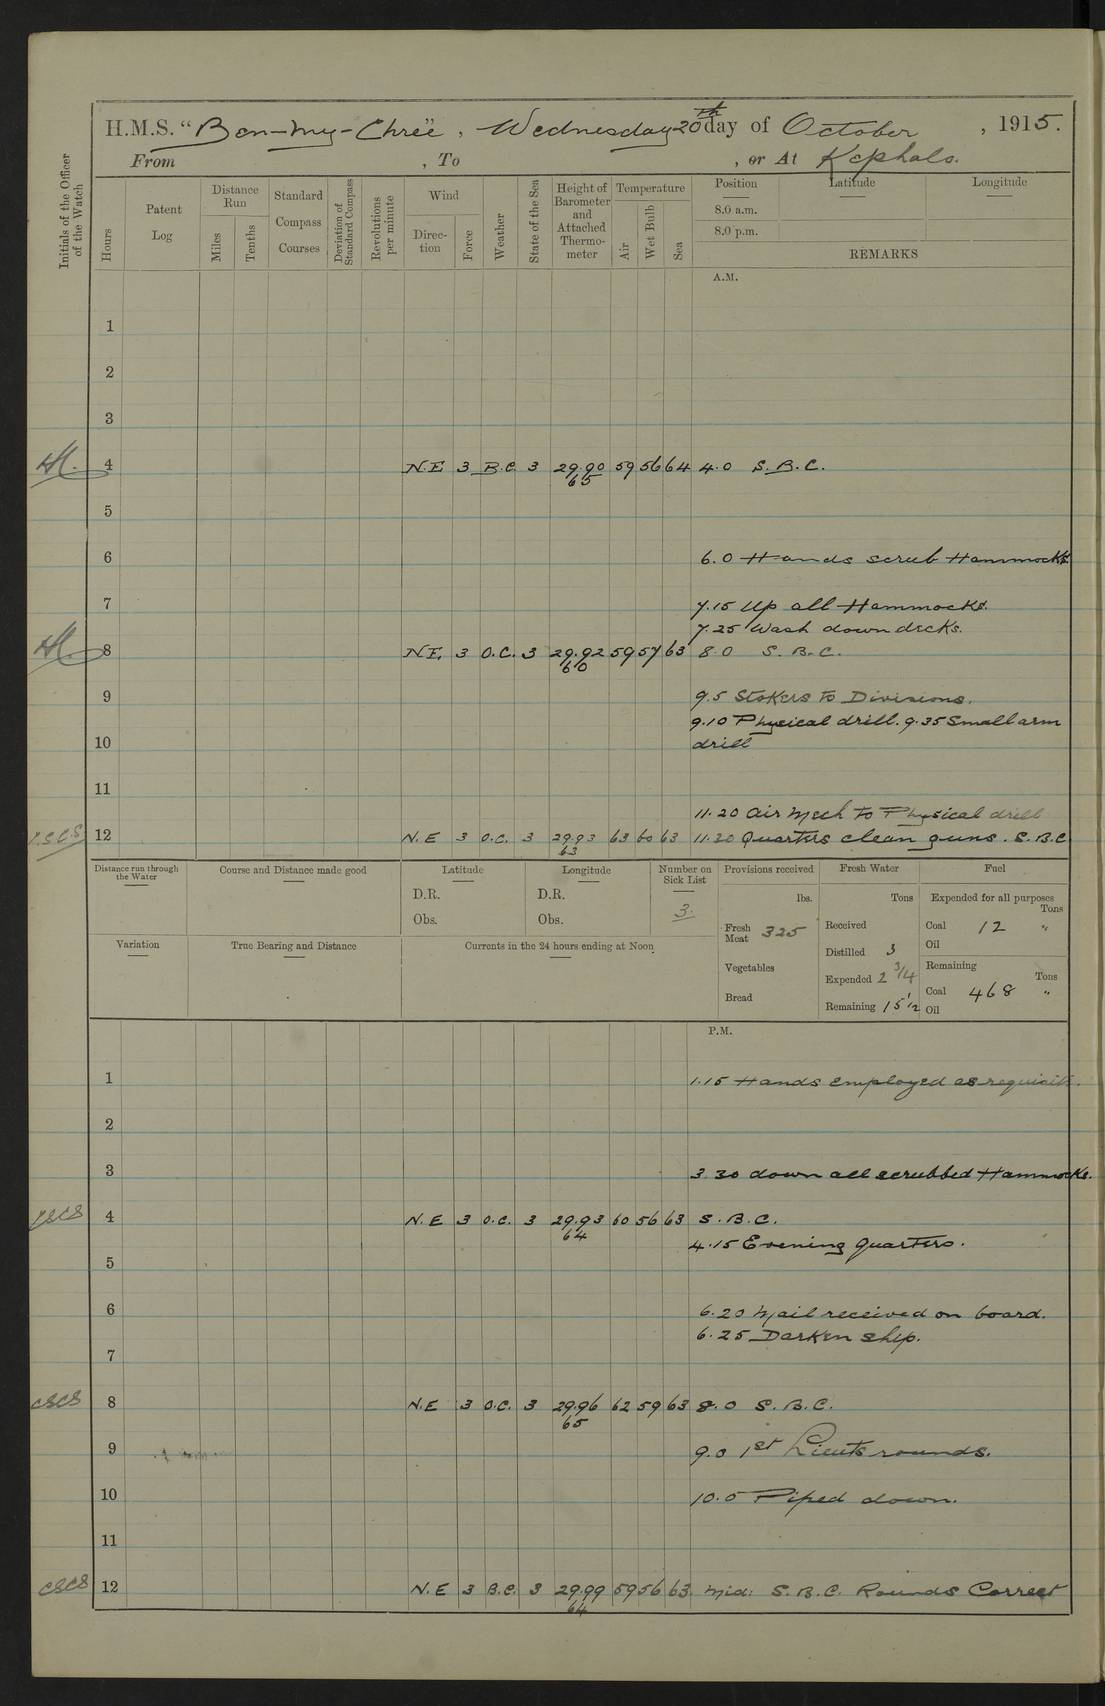 H.M.S. "Ben-my-Chree", Wednesday 20th day of October, 1915.
From , To , or At Kephalo.
Initials of the Officer of the Watch
Hours
Patent Log
Distance Run
Miles
Tenths
Standard Compass Courses
Deviation of Standard Compass
Revolutions per minute
Wind
Direction
Force
Weather
State of the Sea
Height of Barometer and Attached Thermometer
Temperature
Air
Wet Bulb
Sea
Position Latitude Longitude
8.0 a.m.
8.0 p.m.
REMARKS
A.M.
1
2
3
4 N.E 3 B.C. 3 29.90 59 56 64 4.0 S.B.C.
65
5
6 6.0 Hands scrub Hammocks.
7 7.15 Up all Hammocks.
7.25 Wash down decks.
8 N.E. 3 O.C. 3 29.92 59 57 63 8.0 S.B.C.
60
9 9.5 Stokers to Divisions.
9.10 Physical drill. 9.35 Small arm
10 drill
11
11.20 Air Mech to Physical drill
12 N.E 3 O.C. 3 29.93 63 60 63 11.30 Quarters clean guns. S.B.C
63
Distance run through the Water
Course and Distance made good
Latitude
D.R.
Obs.
Longitude
D.R.
Obs.
Number on Sick List
3.
Provisions received
lbs.
Fresh Meat 325
Vegetables
Bread
Fresh Water
Tons
Received
Distilled 3
Expended 2 3/4
Remaining 15 1/2
Fuel
Expended for all purposes
Tons
Coal 12 "
Oil
Remaining
Tons
Coal 468 "
Oil
Variation
True Bearing and Distance
Currents in the 24 hours ending at Noon
P.M.
1 1.15 Hands employed as requisite.
2
3 3.30 down all scrubbed Hammocks.
4 N.E 3 O.C. 3 29.93 60 56 63 S.B.C.
64
4.15 Evening Quarters.
5
6 6.20 Mail received on board.
6.25 Darken ship.
7
CSCS 8 N.E 3 O.C. 3 29.96 62 59 63 8.0 S.B.C.
65
9 9.0 1st Lieuts rounds.
10 10.0 Piped down.
11
CSCS 12 N.E 3 B.C. 3 29.99 59 56 63. Mid: S.B.C. Rounds Correct
64